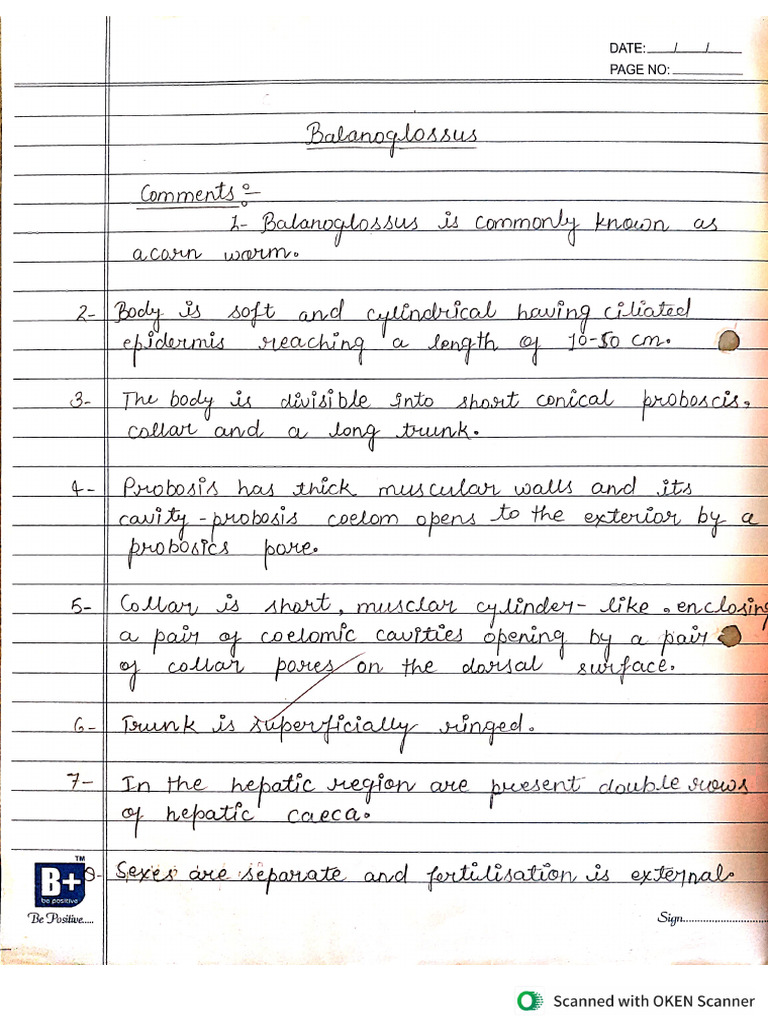 DATE: ___/___/___
PAGE NO: ___
Balanoglossus
Comments:-
1- Balanoglossus is commonly known as
acorn worm.
2- Body is soft and cylindrical having ciliated
epidermis reaching a length of 10-50 cm.
3- The body is divisible into short conical proboscis,
collar and a long trunk.
4- Probosis has thick muscular walls and its
cavity-probosis coelom opens to the exterior by a
probosics pore.
5- Collar is short, musclar cylinder-like, enclosing
a pair of coelomic cavities opening by a pair
of collar pores on the dorsal surface.
6- Trunk is superficially ringed.
7- In the hepatic region are present double rows
of hepatic caeca.
8- Sexes are separate and fertilisation is external.
TM
B+
be positive
Be Positive.....
Sign..........................
Scanned with OKEN Scanner